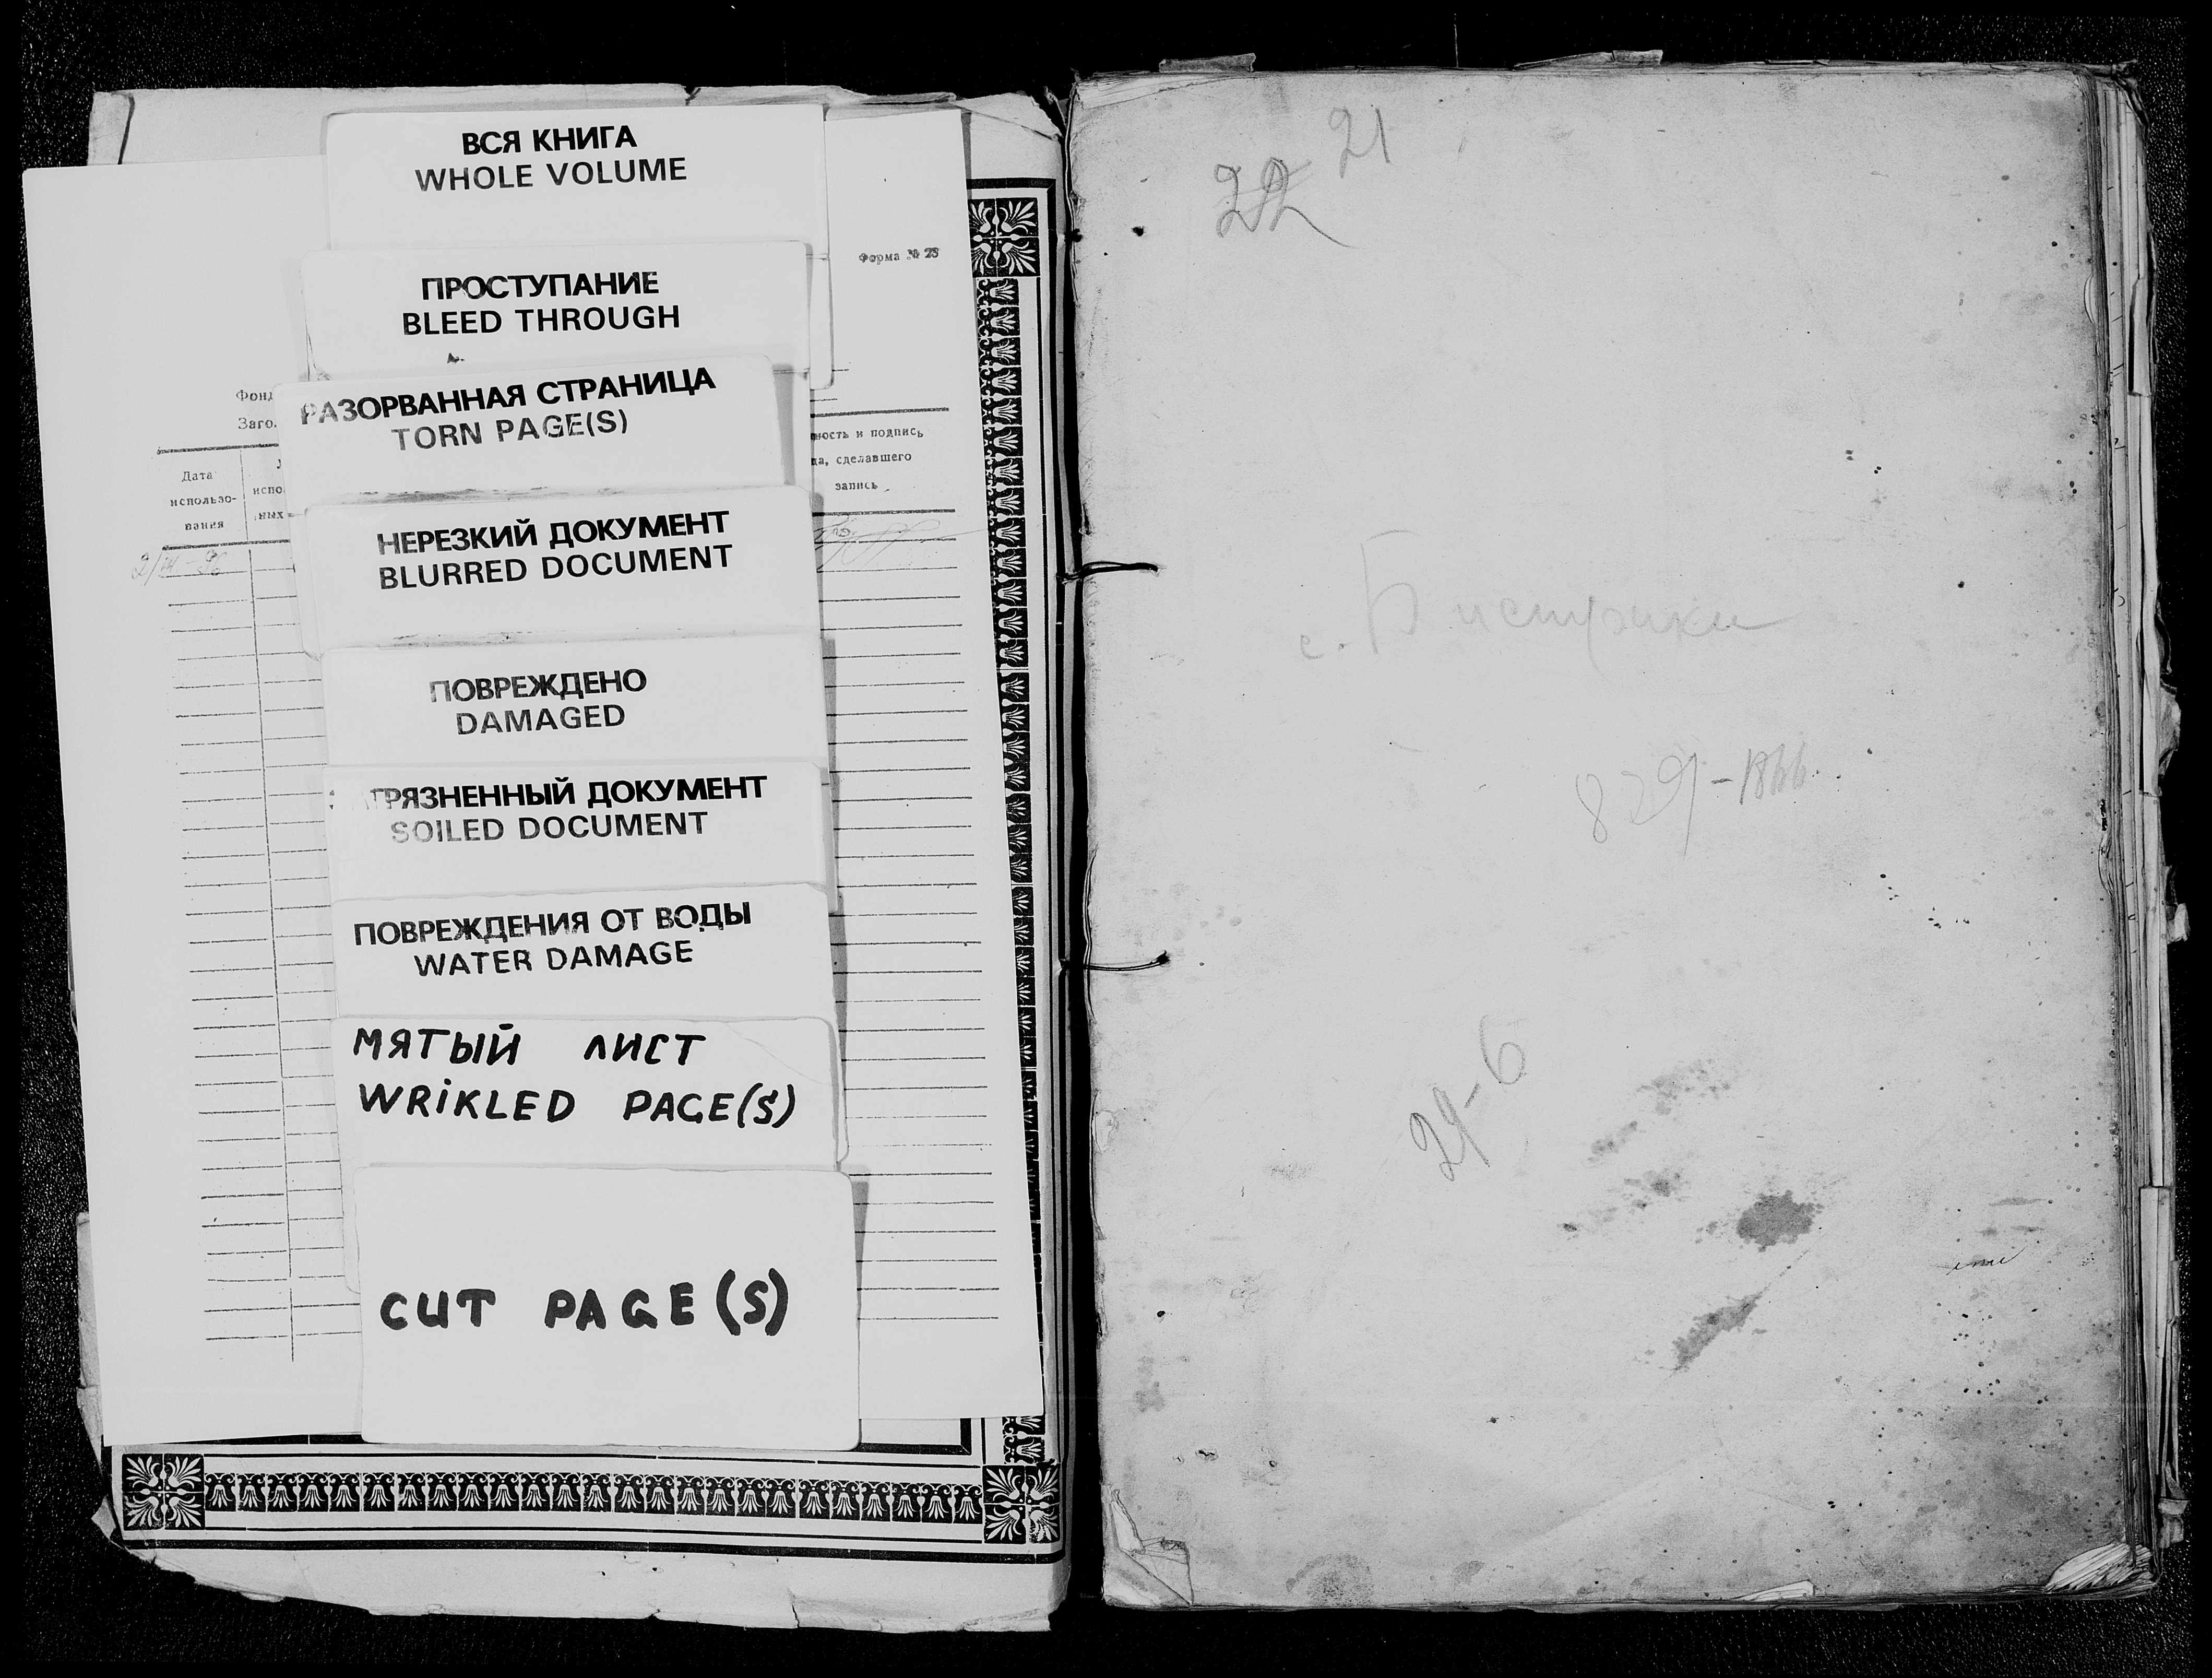 ВСЯ КНИГА
WHOLE VOLUME
Форма № 23
ПРОСТУПАНИЕ
BLEED THROUGH
Фонд
Заго
РАЗОРВАННАЯ СТРАНИЦА
TORN PAGE(S)
ность и подпись
ца, сделавшего
запись
Дата
использо-
вания
испо
ных
НЕРЕЗКИЙ ДОКУМЕНТ
BLURRED DOCUMENT
ПОВРЕЖДЕНО
DAMAGED
ЗАГРЯЗНЕННЫЙ ДОКУМЕНТ
SOILED DOCUMENT
ПОВРЕЖДЕНИЯ ОТ ВОДЫ
WATER DAMAGE
МЯТЫЙ ЛИСТ
WRIKLED PAGE(S)
CUT PAGE(S)
21
22
с. Бистрики
829-1866
29-6